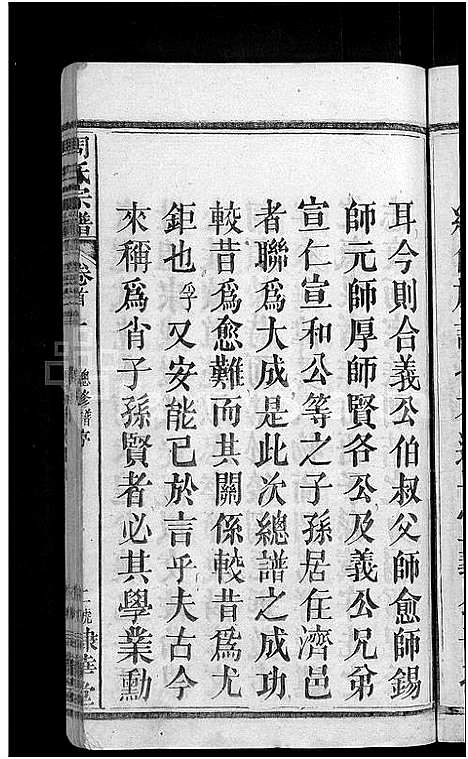 耳今則合義公伯叔父師愈師錫
師元師厚師賢各公及義公兄弟
宣仁宣和公等之子孫居在濟邑
者聯為大成是此次總譜之成功
較昔為愈難而其關係較昔為尤
鉅也孚又安能已於言乎夫古今
來稱為肖子孫賢者必其學業勳
周氏宗譜 卷首一 總修譜序